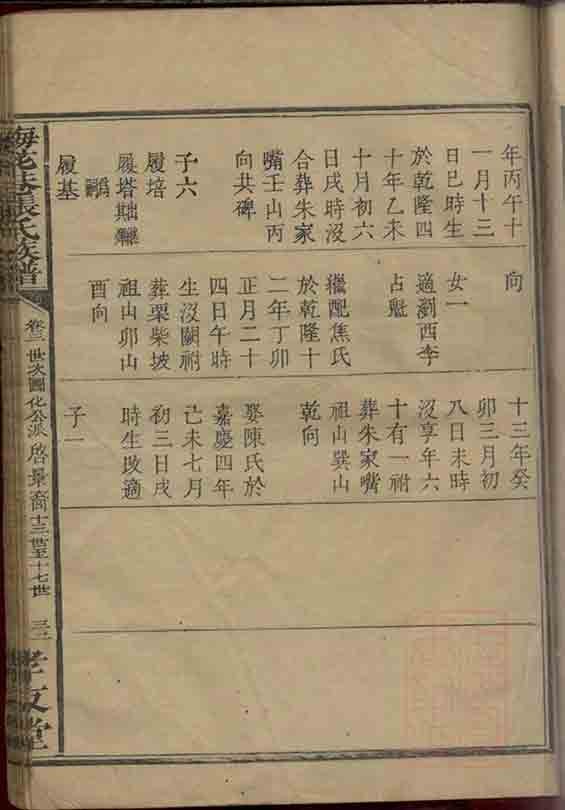 年丙午十
一月十三
日巳時生
於乾隆四
十年乙未
十月初六
日戌時沒
合葬朱家
嘴壬山丙
向共碑
子六
履培
履塔
履基
向
女一
適瀏西李
占魁
繼配焦氏
於乾隆十
二年丁卯
正月二十
四日午時
生沒闕祔
葬栗柴坡
祖山卯山
酉向
十三年癸
卯三月初
八日未時
沒享年六
十有一祔
葬朱家嘴
祖山巽山
乾向
娶陳氏於
嘉慶四年
己未七月
初三日戌
時生改適
子一
梅花巷張氏族譜
卷三 世次圖化公派啓景裔十三世至十七世
孝友堂